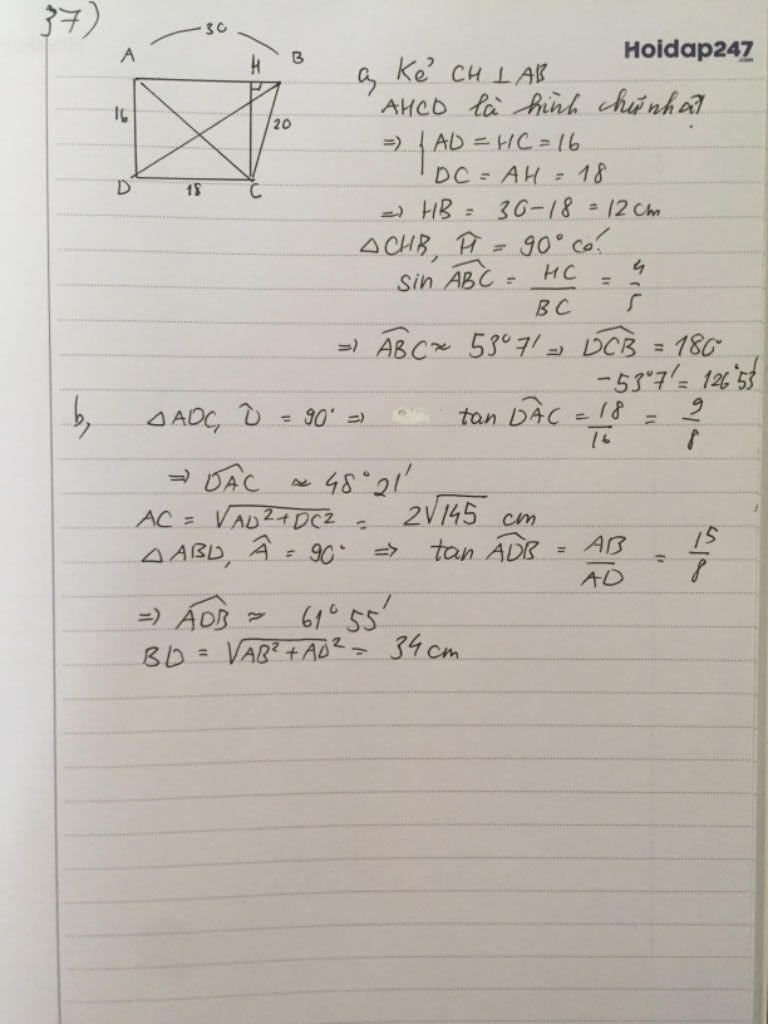 37)
30
A H B
16
20
D 18 C
Hoidap247
.com
a, Kẻ CH ⊥ AB
AHCD là hình chữ nhật
=> { AD = HC = 16
DC = AH = 18
=> HB = 30 - 18 = 12 cm
△CHB, Ĥ = 90° có:
sin ABC = HC/BC = 4/5
=> ABC ≈ 53°7' => DCB = 180°
- 53°7' = 126°53'
b, △ADC, D̂ = 90° => tan DAC = 18/16 = 9/8
=> DAC ≈ 48°21'
AC = √(AD² + DC²) = 2√145 cm
△ABD, Â = 90° => tan ADB = AB/AD = 15/8
=> ADB ≈ 61°55'
BD = √(AB² + AD²) = 34 cm